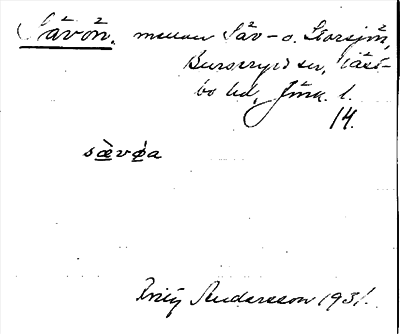 Sävön. mellan Säv- o. Storsjön,
Burseryds sn, Väst-
bo hd, Jönk. l.
14.
sævøa
Fritz Andersson 1931.